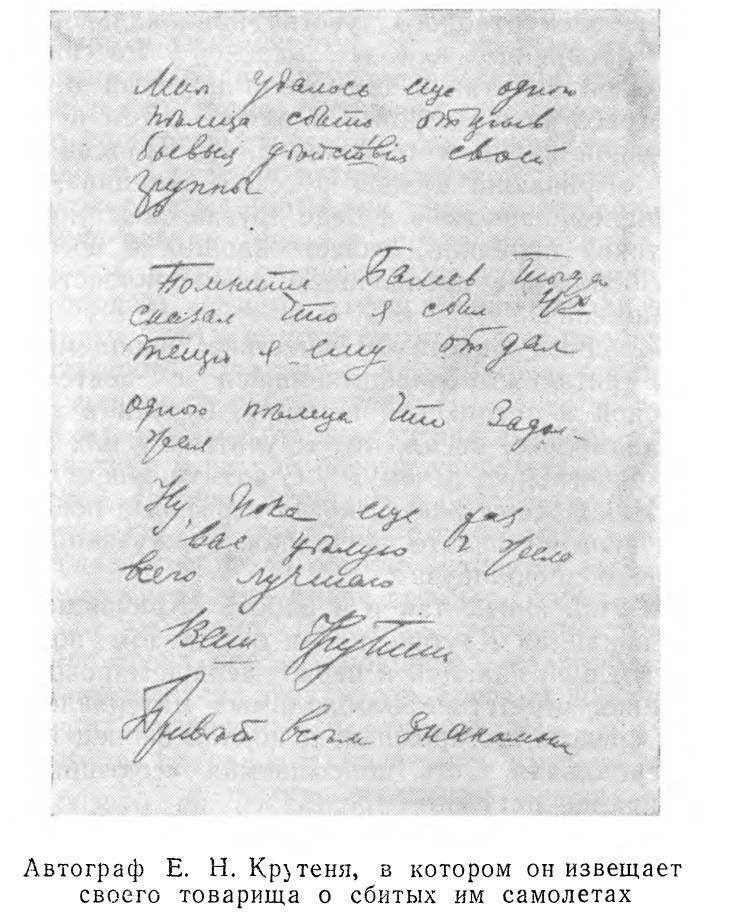 Мнѣ удалось еще одного
нѣмца сбить открыв
боевыя дѣйствія своей
группы
Помните Балиев тогда
сказал что я сбил 4х
я ему отдал
одного нѣмца что задол-
жал
Ну, пока еще раз
вас цѣлую и желаю
всего лучшаго
Ваш Крутень
Привѣт всѣм знакомым
Автограф Е. Н. Крутеня, в котором он извещает
своего товарища о сбитых им самолетах